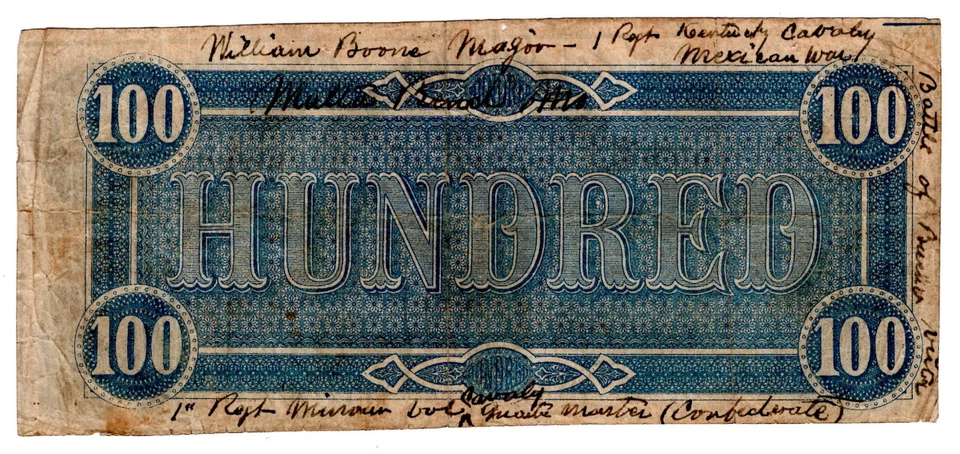 William Boone Magoo – 1 Regt Kentucky Cavalry
Mexican War
100 100
HUNDRED
100 100
Cavaly
1st Regt Missouri Vol. Quarter Master (Confederate)
Battle of Buena Vista